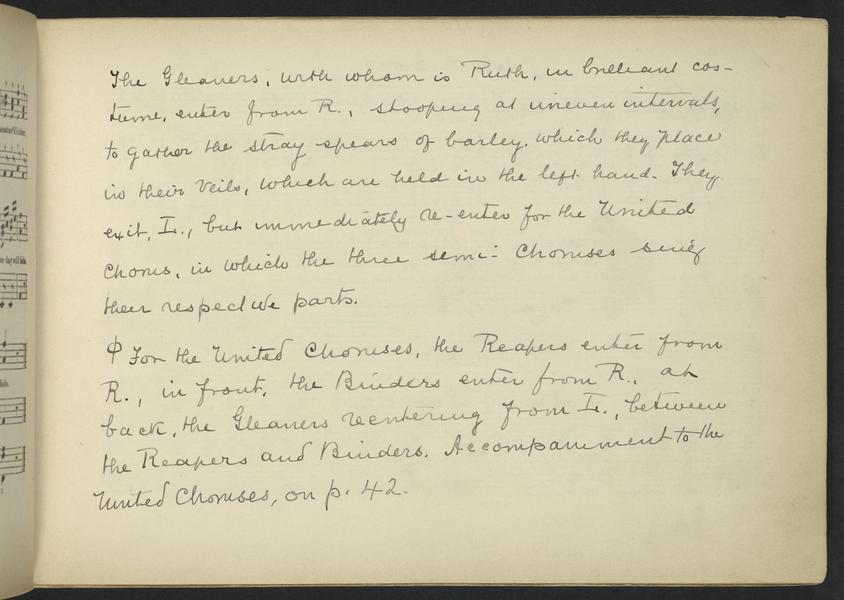 The Gleaners, with whom is Ruth, in brilliant cos-
tume, enter from R., stooping at uneven intervals,
to gather the stray spears of barley, which they place
in their Veils, which are held in the left hand. They
exit, L., but immediately re-enter for the United
Chorus, in which the three semi-Choruses sing
their respective parts.
For the United Choruses, the Reapers enter from
R., in front, the Binders enter from R., at
back, the Gleaners reentering from L., between
the Reapers and Binders. Accompaniment to the
United Choruses, on p. 42.